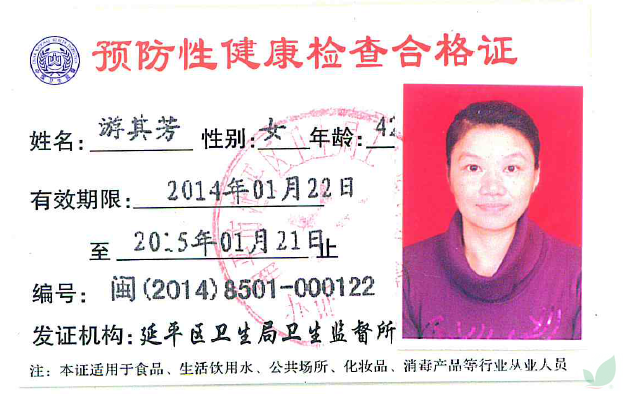 预防性健康检查合格证
姓名: 游其芳 性别: 女 年龄: 42
有效期限: 2014年01月22日
至 2015年01月21日止
编号: 闽(2014)8501-000122
发证机构: 延平区卫生局卫生监督所
注: 本证适用于食品、生活饮用水、公共场所、化妆品、消毒产品等行业从业人员